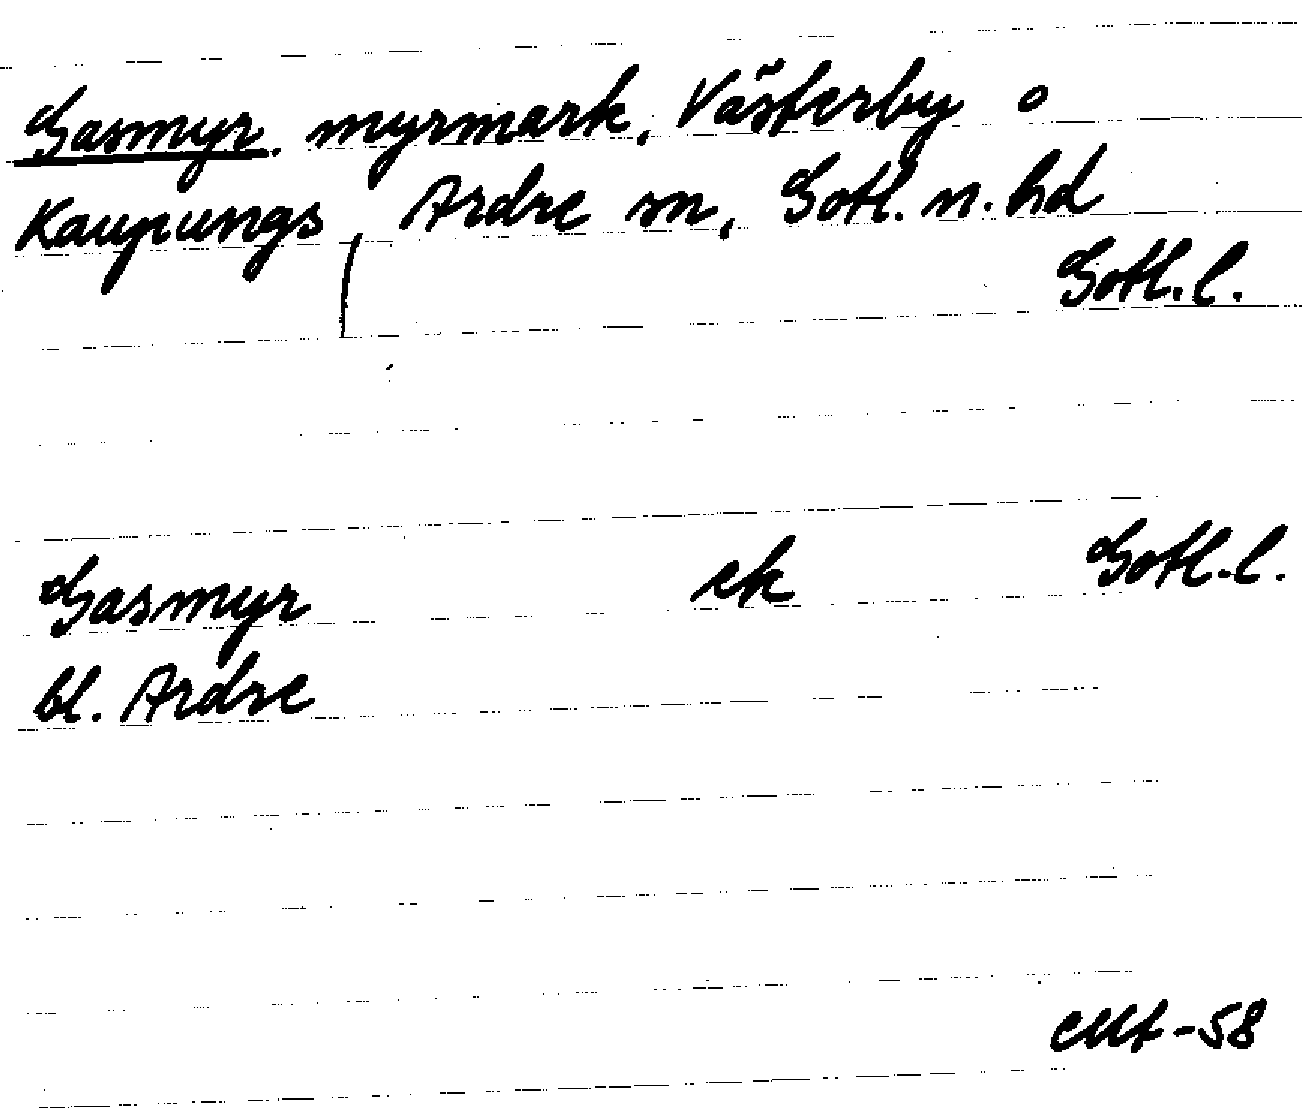 Gasmyr. myrmark, Västerby o
Kaupungs, Ardre sn, Gotl. n. hd
Gotl. l.
Gasmyr ek Gotl. l.
bl. Ardre
-58